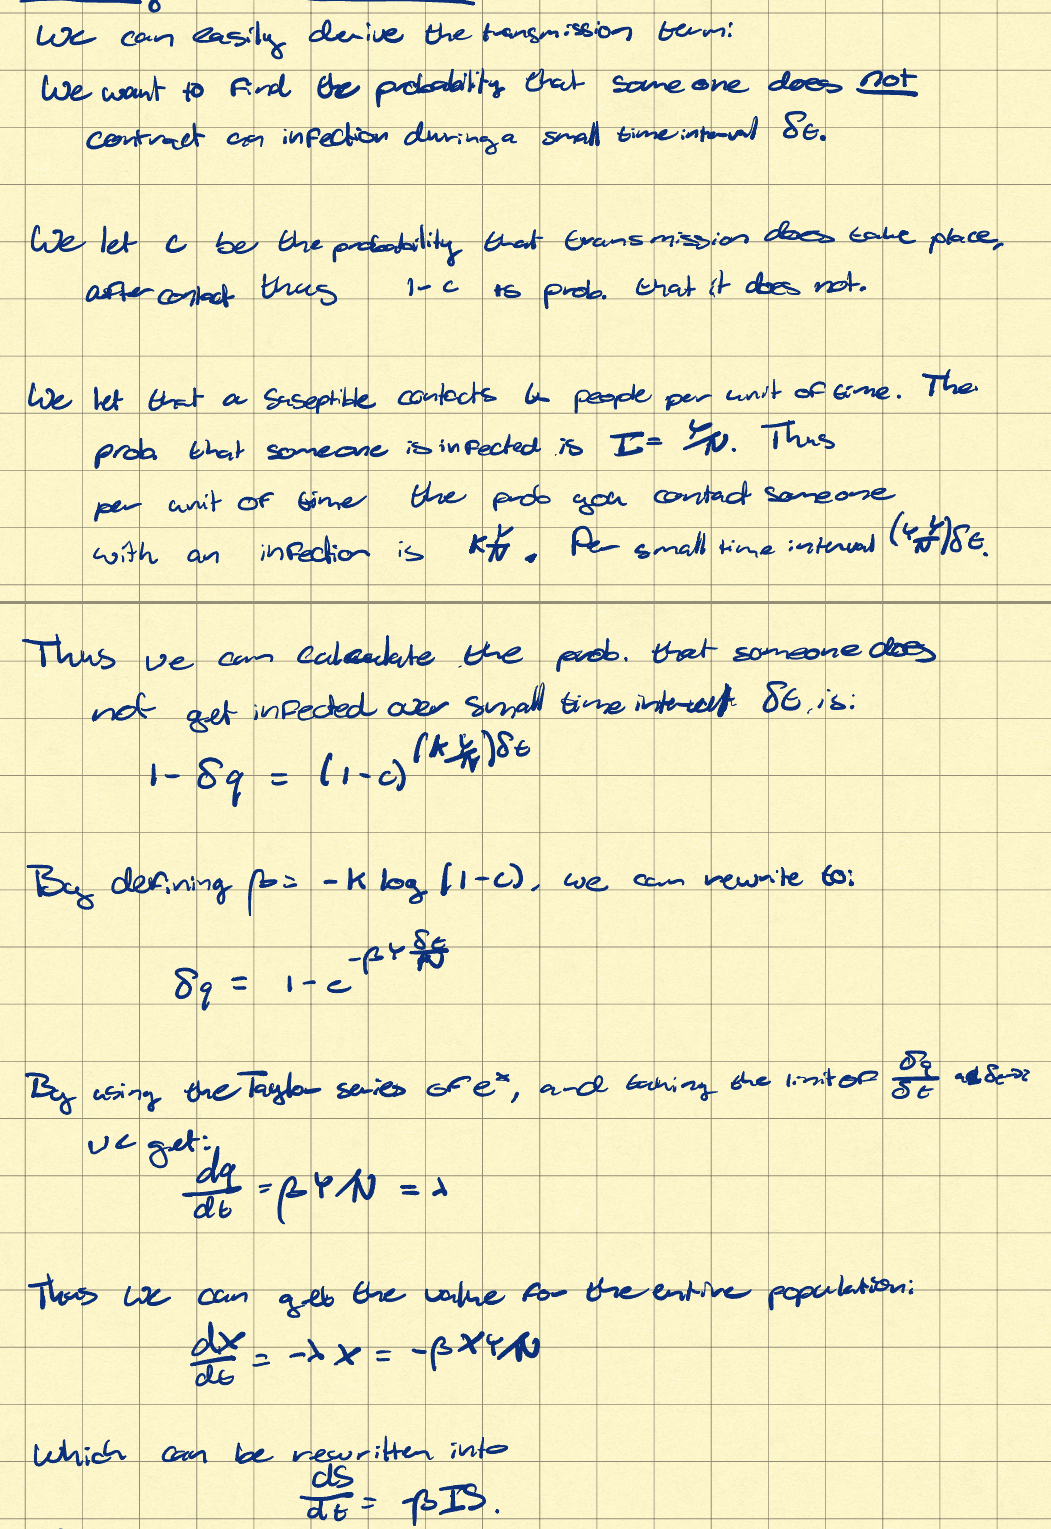 We can easily derive the transmission term:
We want to find the probability that someone does not
contract an infection during a small time interval δt.
We let c be the probability that transmission does take place,
after contact thus 1-c is prob. that it does not.
We let that a suseptible contacts k people per unit of time. The
prob. that someone is infected is I = Y/N. Thus
per unit of time the prob you contact someone
with an infection is K Y/N. Per small time interval (K Y/N)δt.
Thus we can calculate the prob. that someone does
not get infected over small time interval δt, is:
1 - δq = (1-c)^(K Y/N)δt
By defining β = -K log (1-c), we can rewrite to:
δq = 1 - e^(-βY δt/N)
By using the Taylor series of e^x, and taking the limit of δq/δt as
we get:
dq/dt = βY/N = λ
Thus we can get the value for the entire population:
dX/dt = -λX = -βXY/N
Which can be rewritten into
dS/dt = -βIS.